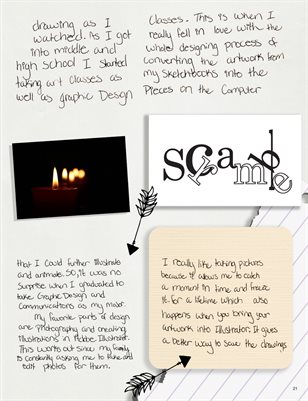 drawing as I
watched. As I got
into middle and
high school I started
taking art classes as
well as Graphic Design
Classes. This is when I
really fell in love with the
whole designing process of
converting the artwork from
my sketchbooks into the
Pieces on the Computer
scramble
that I could further illustrate
and animate. So, it was no
surprise when I graduated to
take Graphic Design and
Communications as my major.
My favorite parts of design
are Photography and creating
Illustrations in Adobe Illustrator.
This works out since my family
is constantly asking me to take and
edit photos for them.
I really like taking pictures
because it allows me to catch
a moment in time and freeze
it for a lifetime which also
happens when you bring your
artwork into Illustrator. It gives
a better way to save the drawings
21